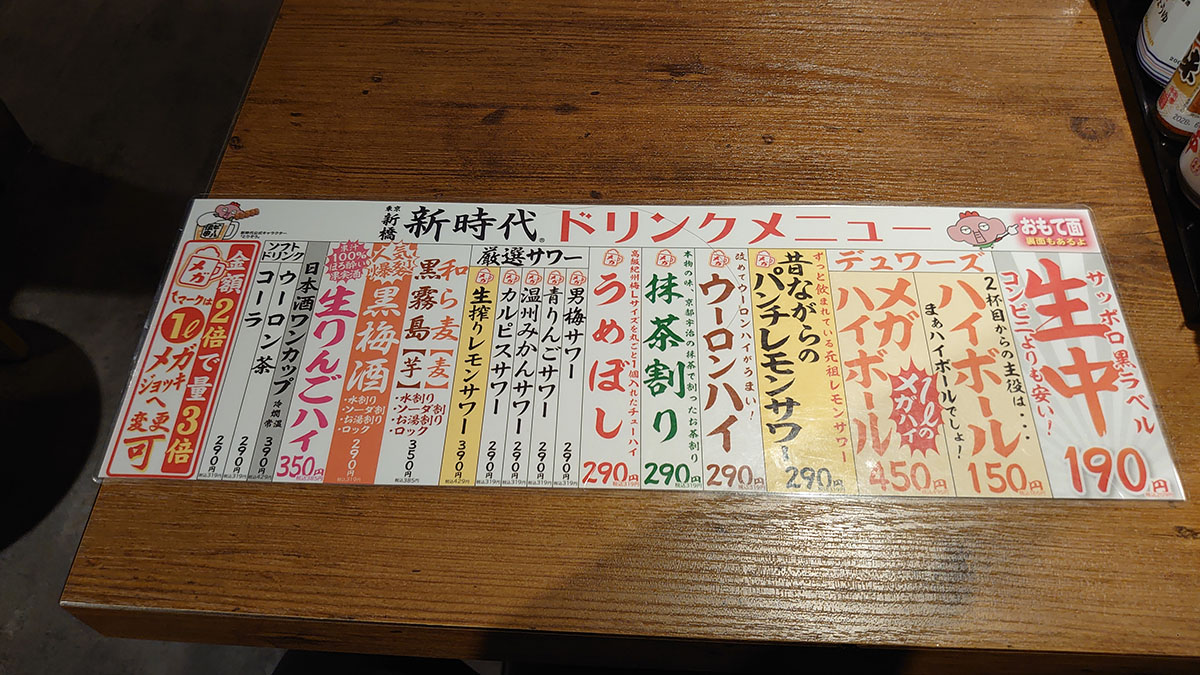 東京
新橋
新時代®
ドリンクメニュー
おもて面
裏面もあるよ
新時代公式キャラクター
サッポロ黒ラベル
生中
コンビニよりも安い!
190円
デュワーズ
2杯目からの主役は・・・
ハイボール
まぁハイボールでしょ!
150円
メガハイボール
1ℓの
メガハイ
450円
ずっと飲まれている元祖レモンサワー
昔ながらの
パンチレモンサワー
290円
メガ
改めてウーロンハイがうまい!
ウーロンハイ
290円
メガ
本物の味、京都宇治の抹茶で割ったお茶割り
抹茶割り
290円
メガ
高級紀州梅Lサイズを丸ごと1個入れたチューハイ
うめぼし
290円
厳選サワー
メガ
男梅サワー
290円
税込319円
メガ
青りんごサワー
290円
税込319円
メガ
温州みかんサワー
290円
税込319円
メガ
カルピスサワー
290円
税込319円
メガ
生搾りレモンサワー
390円
税込429円
和ら麦【麦】
黒霧島【芋】
・水割り
・ソーダ割り
・お湯割り
・ロック
350円
税込385円
人気爆裂
黒梅酒
・水割り
・ソーダ割り
・お湯割り
・ロック
290円
税込319円
果汁100%
ほろ酔い
果実酒
生りんごハイ
350円
税込385円
日本酒ワンカップ
冷 燗 常温
390円
税込429円
ソフト
ドリンク
ウーロン茶
290円
税込319円
コーラ
290円
税込319円
メガ
マークは
金額2倍で量3倍
1ℓメガ
ジョッキへ
変更可